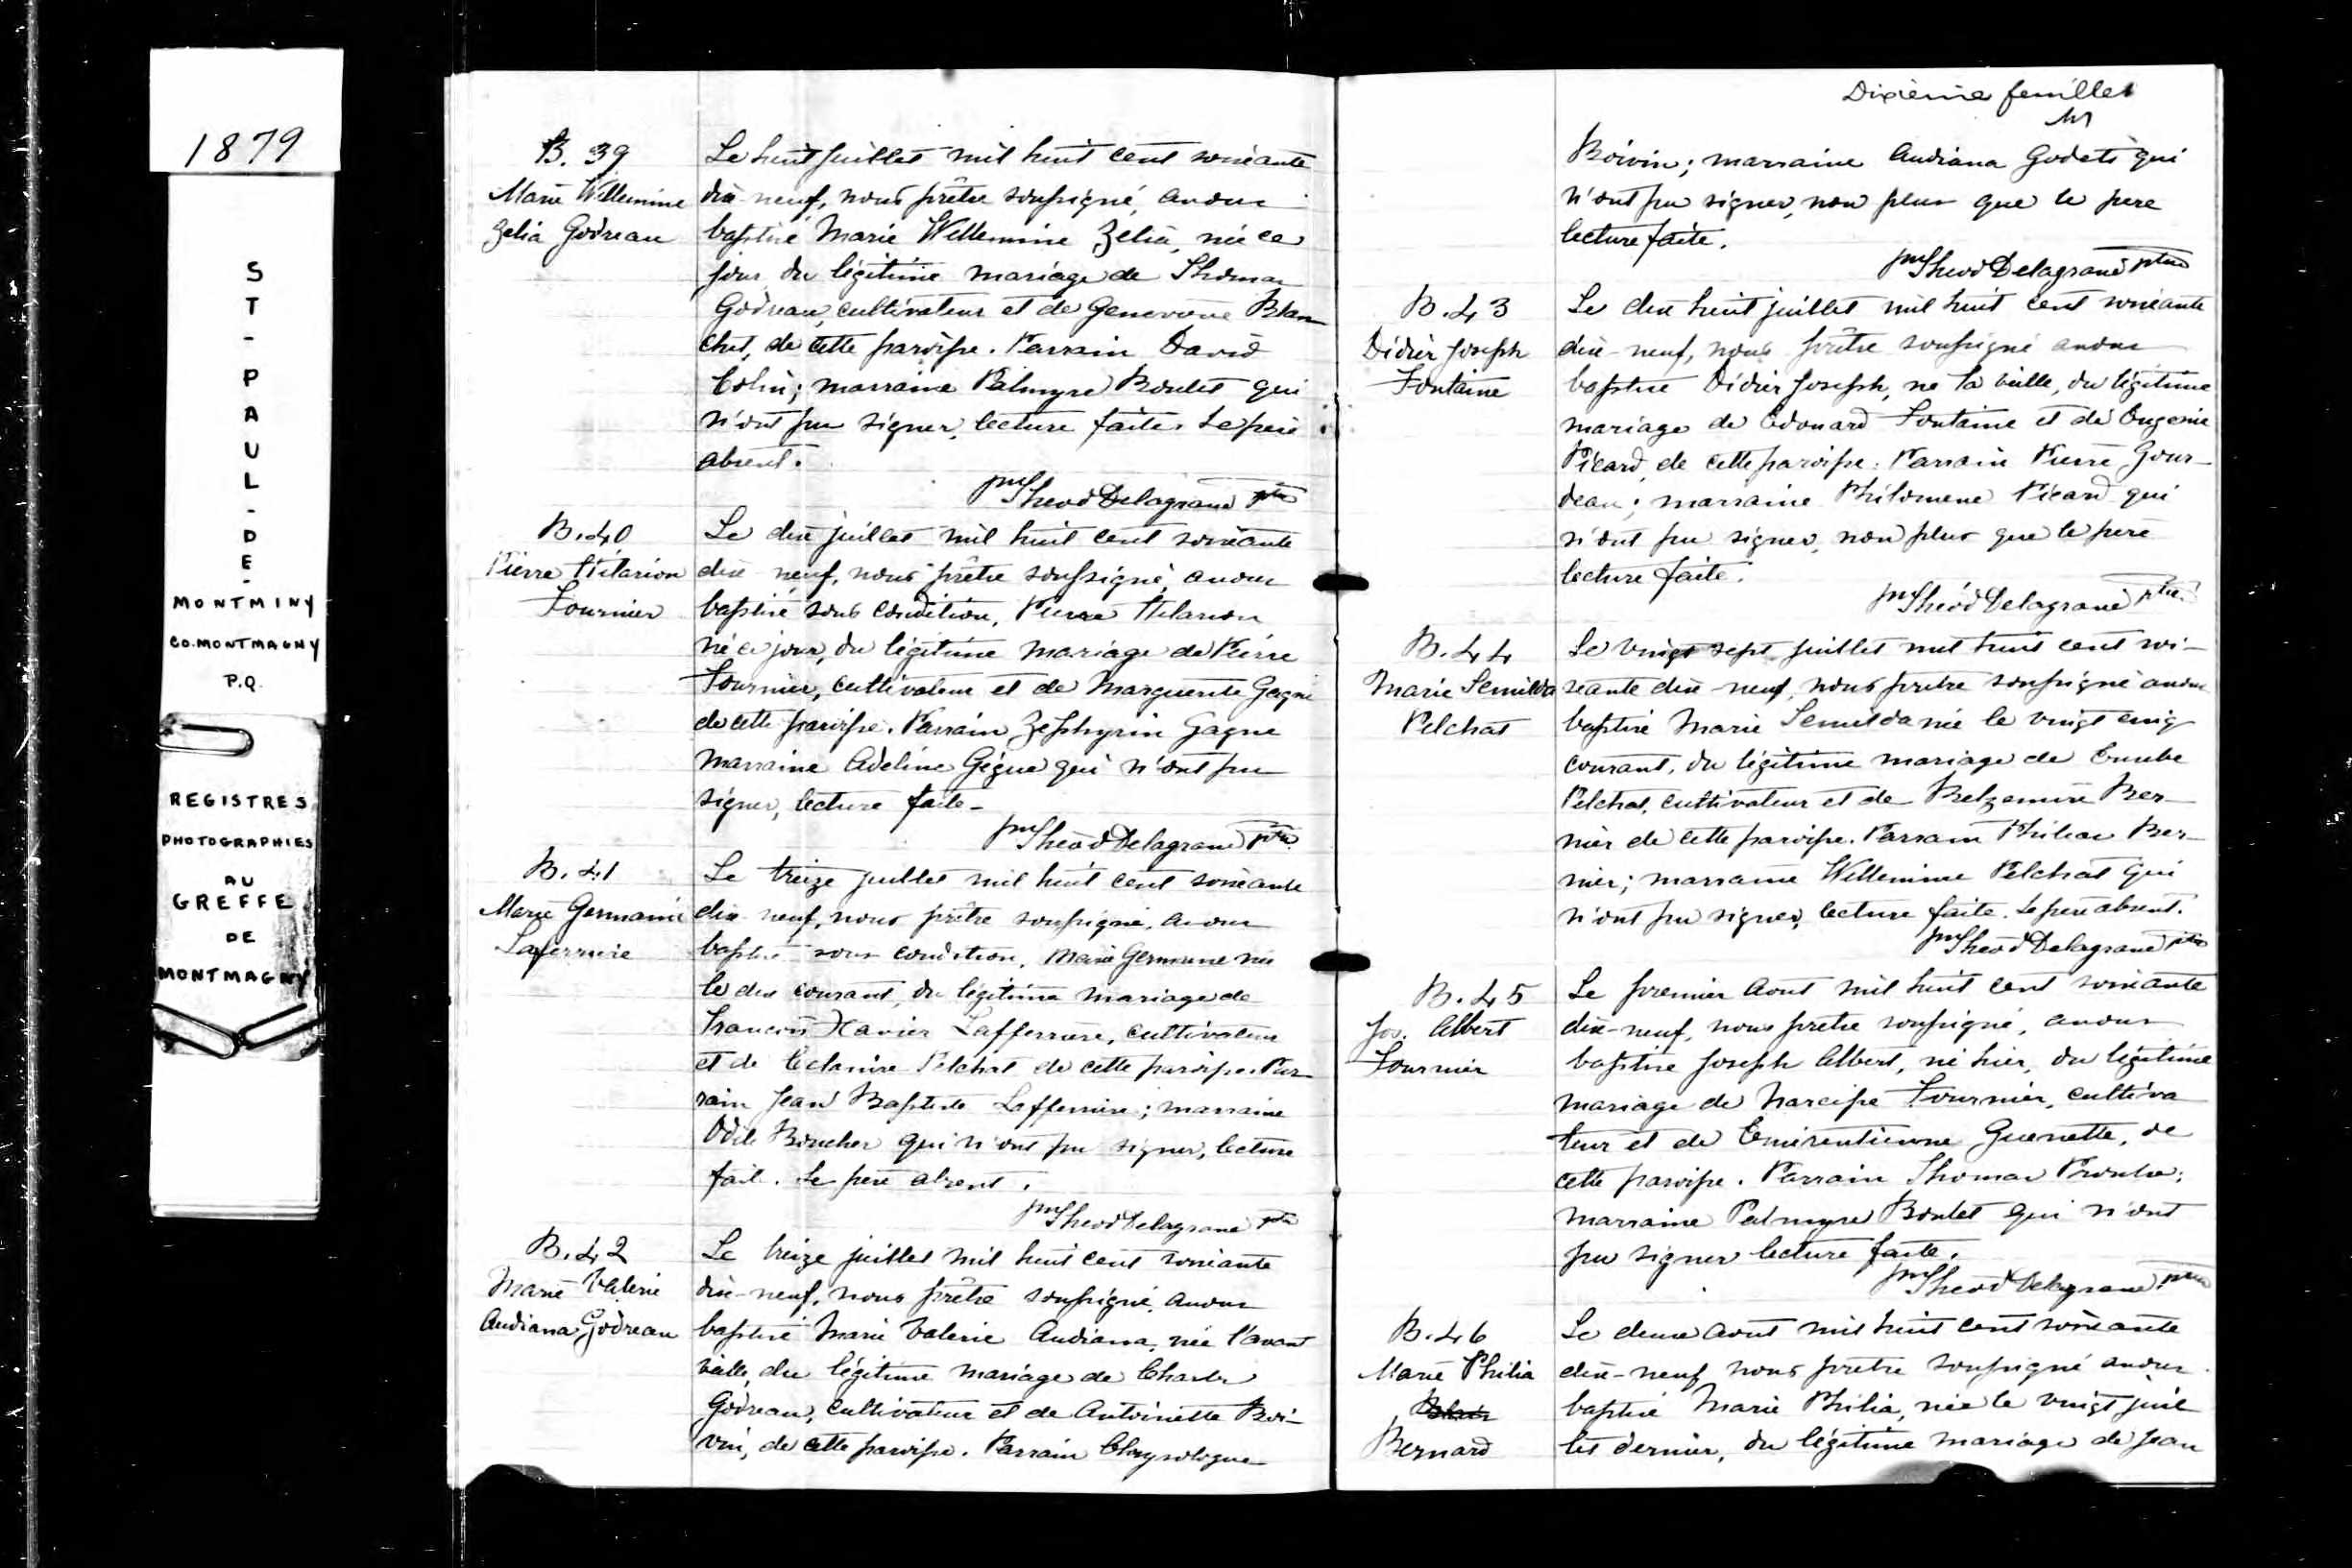 1879
ST-PAUL-DE-
MONTMINY
CO. MONTMAGNY
P.Q.
REGISTRES
PHOTOGRAPHIES
AU
GREFFE
DE
MONTMAGNY
B. 39
Marie Wellemine
Zelia Godreau
Le huit juillet mil huit cent soixante
dix-neuf, nous prêtre soussigné, avons
baptisé Marie Wellemine Zelia, née ce
jour du légitime mariage de Thomas
Godreau, cultivateur et de Genevieve Blan
chet, de cette paroisse. Parrain David
Colin; marraine Palmyre Boulet qui
n'ont pu signer, lecture faite. Le père
absent.
Theod Delagrave ptre
B. 40
Pierre Hilarion
Fournier
Le dix juillet mil huit cent soixante
dix neuf, nous prêtre soussigné, avons
baptisé sous condition, Pierre Hilarion
né ce jour, du légitime mariage de Pierre
Fournier, cultivateur et de Marguerite Gagné
de cette paroisse. Parrain Zephyrin Gagne
Marraine Adeline Gègue qui n'ont pu
signer, lecture faite-
Theod Delagrave ptre
B. 41
Marie Germaine
Laferriere
Le treize juillet mil huit cent soixante
dix-neuf, nous prêtre soussigné, avons
baptisé sous condition, Marie Germaine née
le dix courant, du légitime mariage de
Francois Xavier Lafferriere, cultivateur
et de Pelchat de cette paroisse. Par
rain Jean Baptiste Lafferriere; marraine
Odile Boucher qui n'ont pu signer, lecture
faite. Le père absent.
Theod Delagrave ptre
B. 42
Marie Valerie
Audiana Godreau
Le treize juillet mil huit cent soixante
dix-neuf, nous prêtre soussigné, avons
baptisé Marie Valerie Audiana, née l'avant
veille, du légitime mariage de Charles
Godreau, cultivateur et de Antoinette Boi-
vin, de cette paroisse. Parrain Chrysologue
Dixième feuillet
Boivin; marraine Audiana Godets qui
n'ont pu signer, non plus que le pere
lecture faite.
Theod Delagrave ptre
B. 43
Didier Joseph
Fontaine
Le dix huit juillet mil huit cent soixante
dix-neuf, nous prêtre soussigné avons
baptisé Didier Joseph, né la veille, du légitime
mariage de Edouard Fontaine et de Eugenie
Picard, de cette paroisse. Parrain Pierre Gour-
deau; marraine Philomene Picard qui
n'ont pu signer, non plus que le pere
lecture faite.
Theod Delagrave ptre
B. 44
Marie Semilda
Pelchat
Le vingt sept juillet mil huit cent soi-
xante dix-neuf, nous pretre soussigné avons
baptisé Marie Semilda née le vingt cinq
courant, du légitime mariage de
Pelchat, cultivateur et de Belzemire Ber-
nier de cette paroisse. Parrain Ber-
nier; marraine Wellemine Pelchat qui
n'ont pu signer, lecture faite. Le pere absent.
Theod Delagrave ptre
B. 45
Jos. Albert
Fournier
Le premier Aout mil huit cent soixante
dix-neuf, nous pretre soussigné, avons
baptisé Joseph Albert, né hier, du légitime
mariage de Narcisse Fournier, cultiva
teur et de Emérentienne Guenette, de
cette paroisse. Parrain Thomas Proulx;
marraine Palmyre Boulet qui n'ont
pu signer lecture faite.
Theod Delagrave ptre
B. 46
Marie Philia
Bernard
Le deux aout mil huit cent soixante
dix-neuf nous pretre soussigné avons
baptisé Marie Philia, née le vingt juil
let dernier, du légitime mariage de Jean